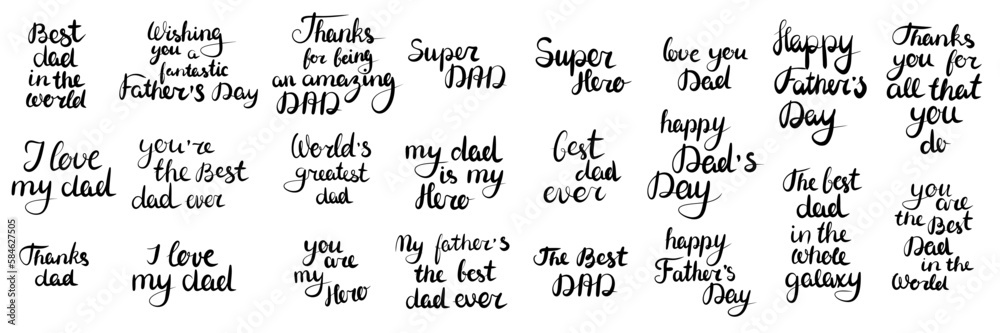 Best
dad
in the
world
Wishing
you a
fantastic
Father's Day
Thanks
for being
an amazing
DAD
Super
DAD
Super
Hero
love you
Dad
Happy
Father's
Day
Thanks
you for
all that
you
do
I love
my dad
you're
the Best
dad ever
World's
greatest
dad
my dad
is my
Hero
best
dad
ever
happy
Dad's
Day
The best
dad
in the
whole
galaxy
you
are
the Best
Dad
in the
World
Thanks
dad
I love
my dad
you
are
my
Hero
My father's
the best
dad ever
The Best
DAD
happy
Father's
Day
Adobe Stock | #584627505